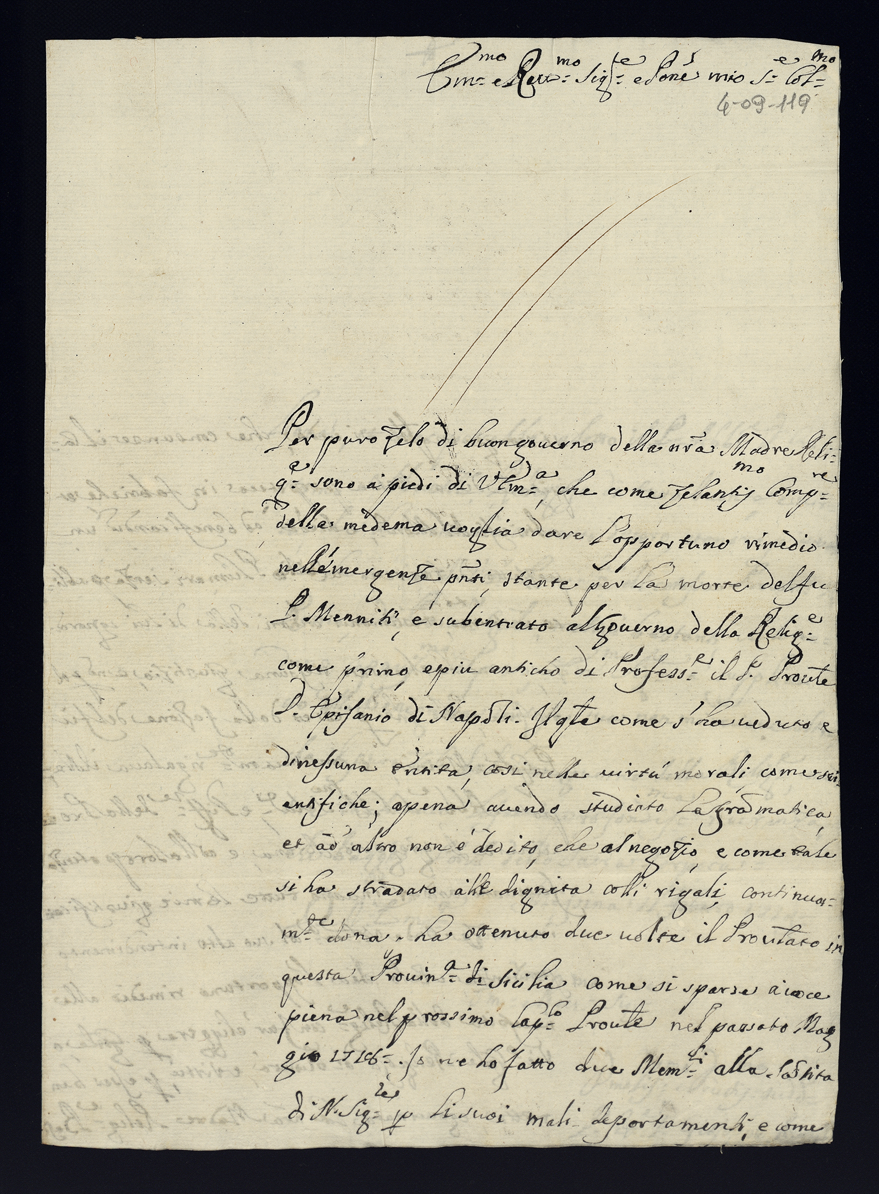 Em.mo e Rev.mo Sig.re e Pone mio S.e Col.mo
4-09-119
Per puro zelo di buon gouerno della nrã Madre Reli-
g.e sono à piedi di V Em.a che come zelantis.mo Comp.re
della mèdema uoglia dare l'opportuno rimedio
nell'emergenze pñti, stante per la morte del fu
P. Menniti, e subentrato al gouerno della Relig.e
come primo, e piu anticho di Profess.e il P. Proule
D. Epifanio di Napoli. Il qle come s'ha ueduto e
di nessuna entita, cosi nelle uirtú morali come sci
entifiche; apena auendo studiato la gramatica,
et ad altro non è dedito, che al negozio, e come tale
si ha stradato alle dignita colli rigali, continua-
m.te dona. ha ottenuto due uolte il Proulato in
questa Prouin.a di Sicilia come si sparse a uoce
piena nel prossimo Cap.lo Proule nel passato Mag
gio 1718. Io ne ho fatto due Mem.li alla Santita
di N. Sig.re p li suoi mali deportamenti, e come